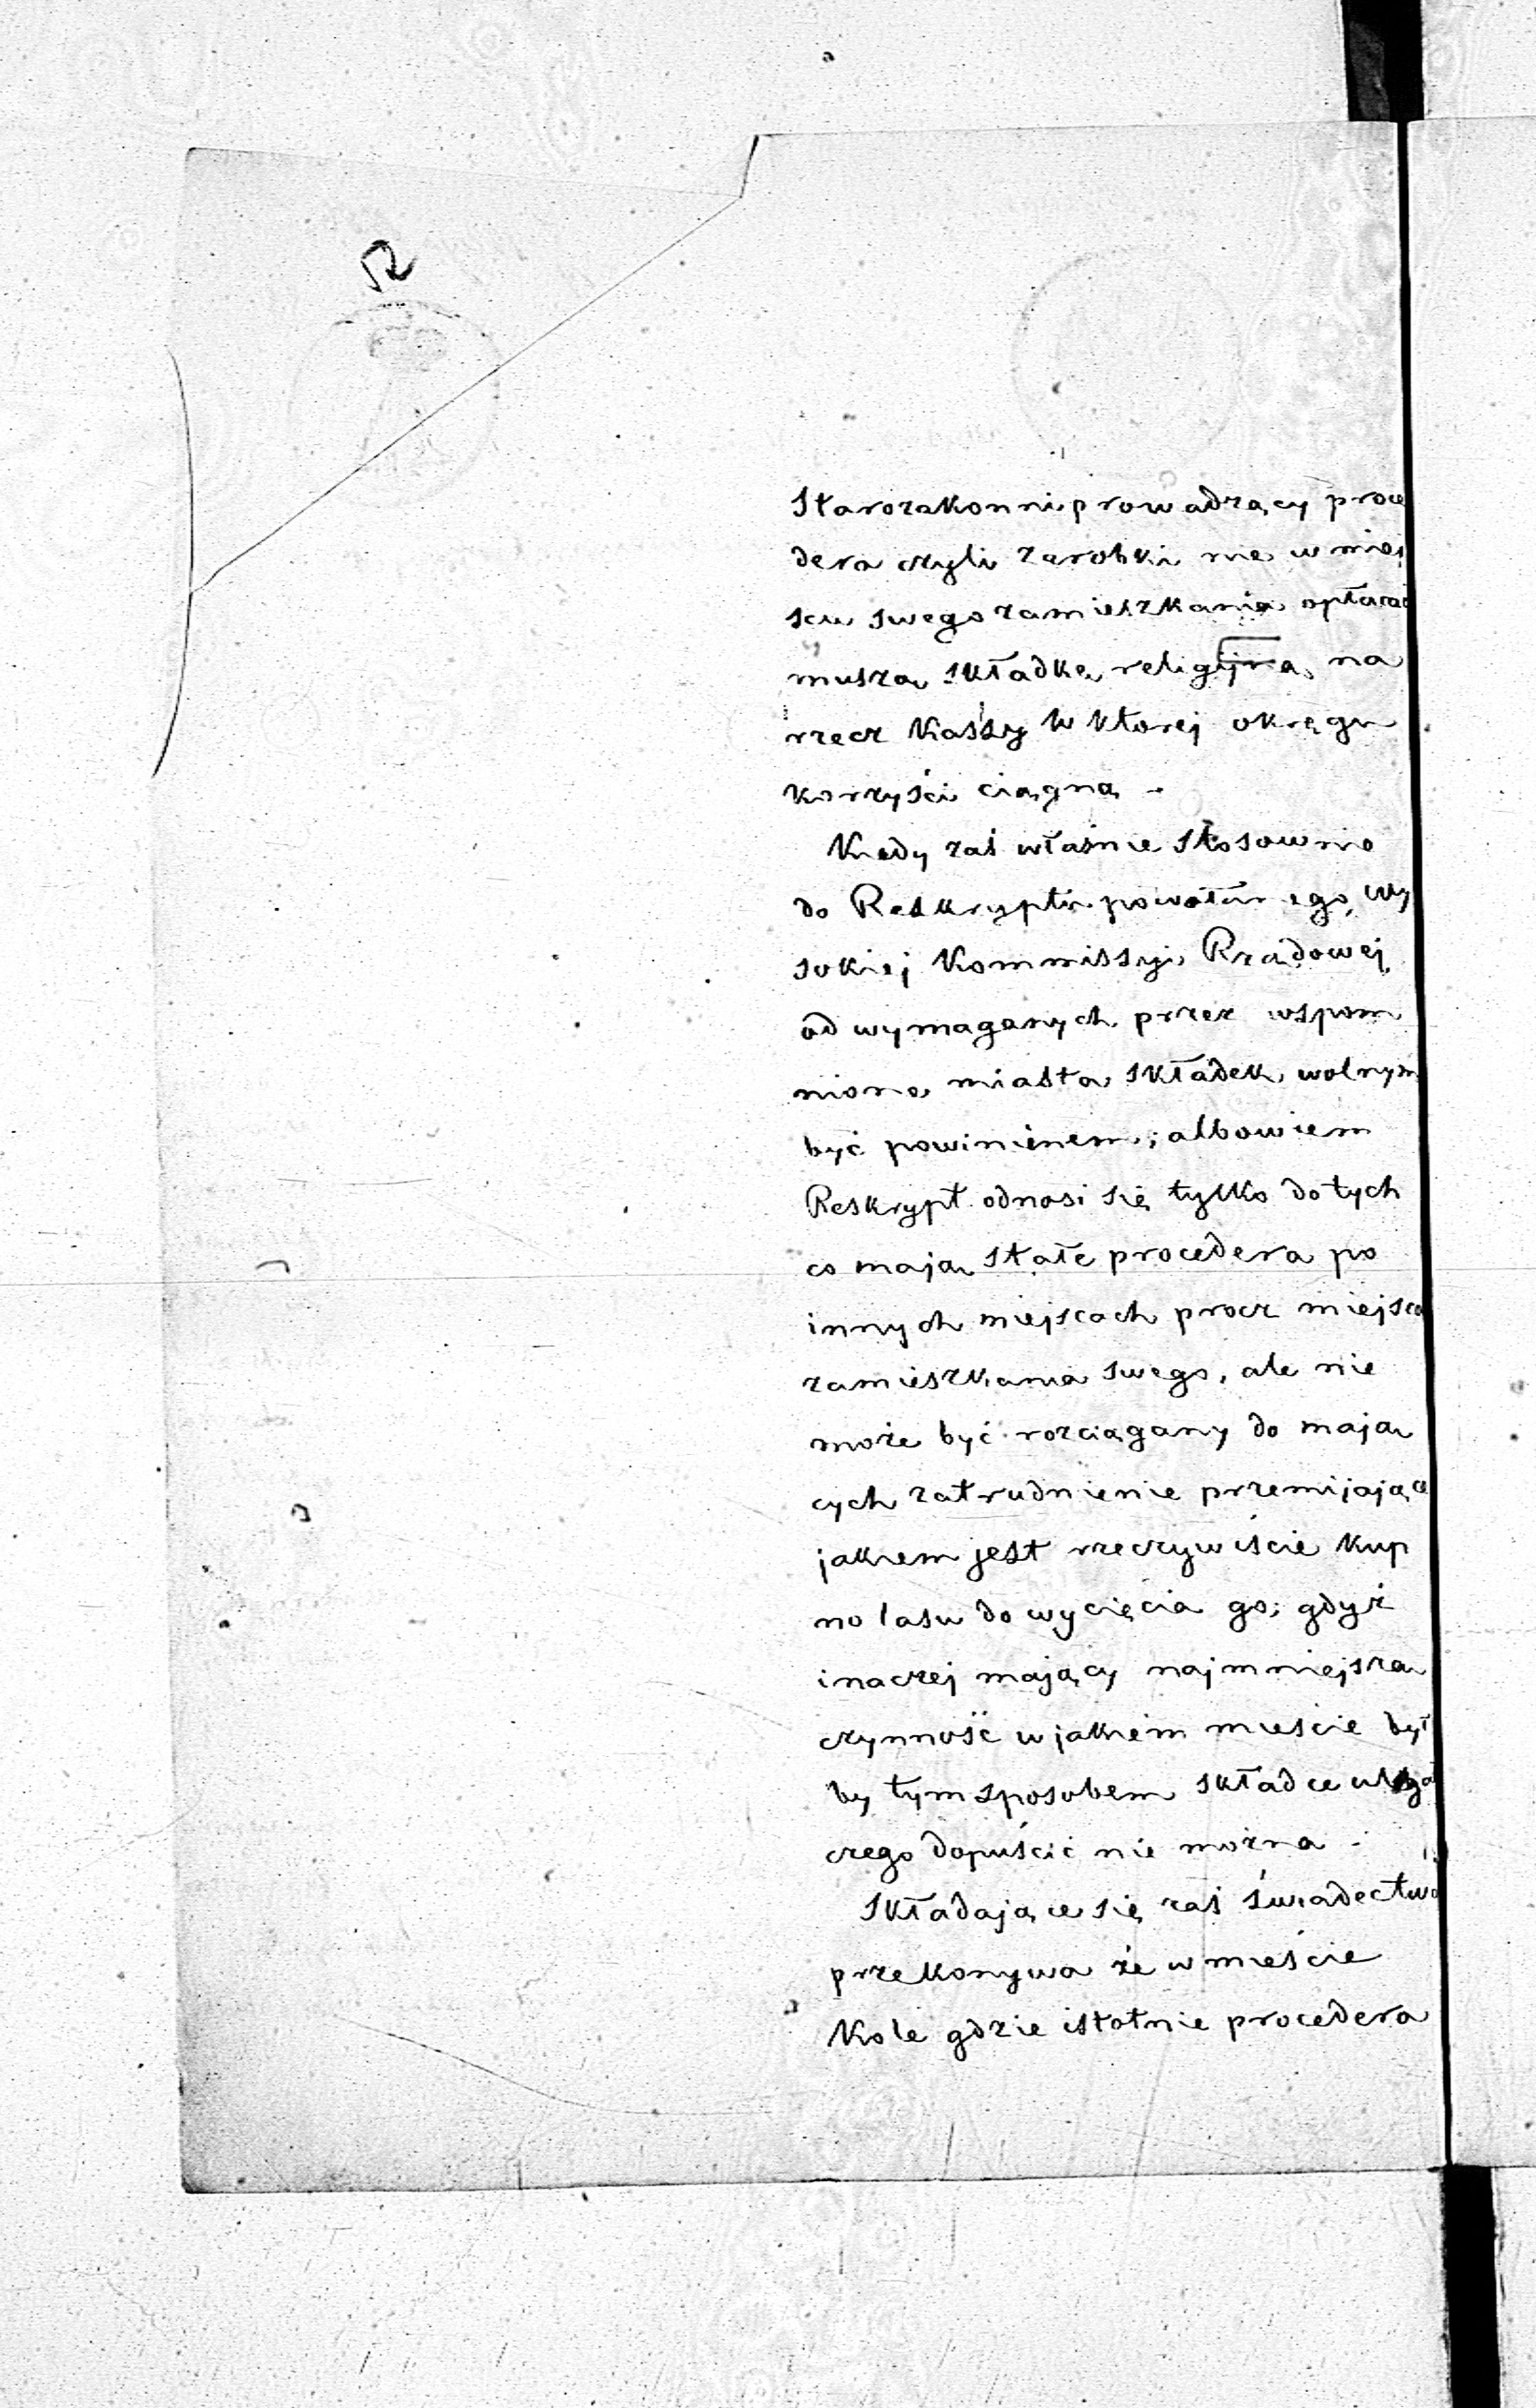 52
Starozakonni prowadzący proce
dera czyli zarobki nie w miej
scu swego zamieszkania opłacać
muszą składkę religijną na
rzecz Kassy w ktorej okręgu
korzyści ciągną -
Kiedy zaś właśnie stosownie
do Reskryptu powołanego Wy
sokiej Kommissyi Rządowej
od wymaganych przez wspom
nione miasta składek wolnym
być powinienem; albowiem
Reskrypt odnosi się tylko do tych
co mają stałe procedera po
innych miejscach procz miejsca
zamieszkania swego, ale nie
może być rozciągany do mają
cych zatrudnienie przemijające
jakiem jest rzeczywiście kup
no lasu do wycięcia go; gdyż
inaczej mający najmniejszą
czynność w jakiem mieście był
by tym sposobem składce
czego dopuścić nie można -
Składające się zaś świadectwo
przekonywa że w mieście
Kole gdzie istotnie procedera